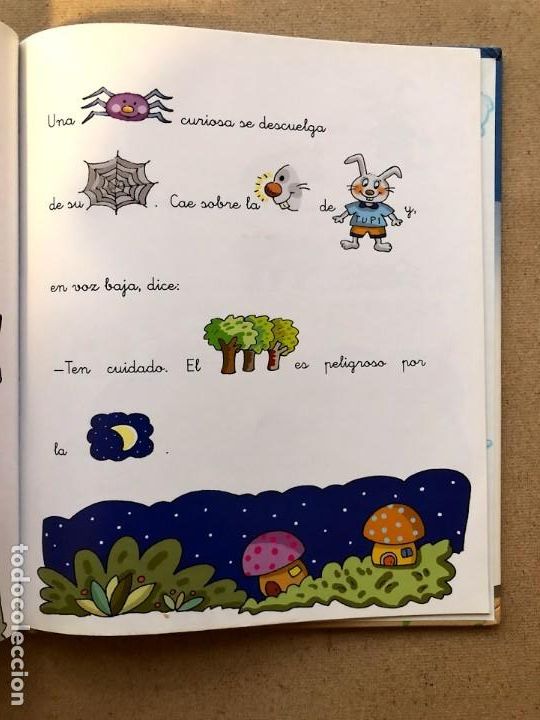 Una curiosa se descuelga
de su . Cae sobre la de y,
TUPI
en voz baja, dice:
—Ten cuidado. El es peligroso por
la .
todocoleccion